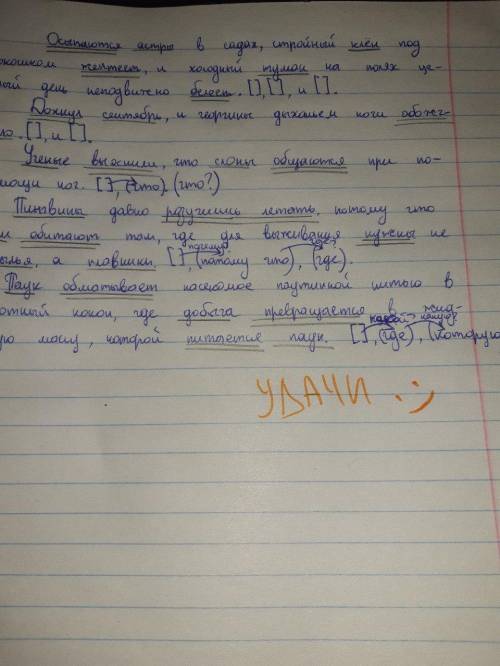 Осыпаются астры в садах, стройный клён под
окошком желтеет, и холодный туман на полях це-
лый день неподвижно белеет. [ ], [ ], и [ ].
Дохнул сентябрь, и георгины дыханьем ночи обожг-
ло. [ ], и [ ].
Ученые выяснили, что слоны общаются при по-
мощи ног. [ ], (что). (что?)
Пингвины давно разучились летать, потому что
они обитают там, где для выживания нужны не
почему? где?
крылья, а плавники. [ ], (потому что), (где).
Паук обматывает насекомое паутинной нитью в
плотный кокон, где добыча превращается в жид-
какой? какую?
кую массу, которой питается паук. [ ], (где), (которую
УДАЧИ :)